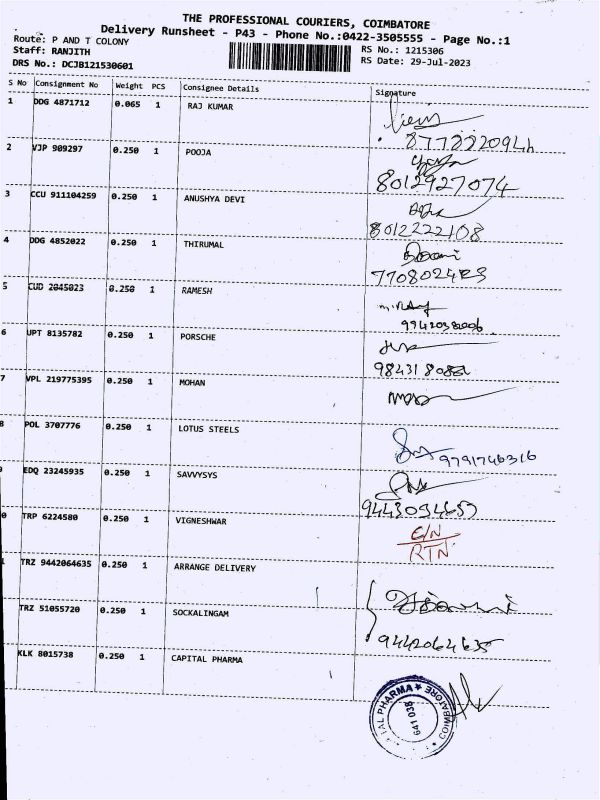 THE PROFESSIONAL COURIERS, COIMBATORE
Delivery Runsheet - P43 - Phone No.:0422-3505555 - Page No.:1
Route: P AND T COLONY
Staff: RANJITH
RS No.: 1215306
DRS No.: DCJB121530601
RS Date: 29-Jul-2023
S No Consignment No Weight PCS Consignee Details Signature
1 DDG 4871712 0.065 1 RAJ KUMAR
2 VJP 909297 0.250 1 POOJA
8012927074
3 CCU 911104259 0.250 1 ANUSHYA DEVI
8012222108
4 DDG 4852022 0.250 1 THIRUMAL
5 CUD 2045023 0.250 1 RAMESH
6 UPT 8135782 0.250 1 PORSCHE
7 VPL 219775395 0.250 1 MOHAN
8 POL 3707776 0.250 1 LOTUS STEELS
9791746316
EDQ 23245935 0.250 1 SAVVYSYS
0 TRP 6224580 0.250 1 VIGNESHWAR
C/N
RTN
TRZ 9442064635 0.250 1 ARRANGE DELIVERY
TRZ 51055720 0.250 1 SOCKALINGAM
9442064635
KLK 8015738 0.250 1 CAPITAL PHARMA
AL PHARMA ★ COIMBATORE
641 038